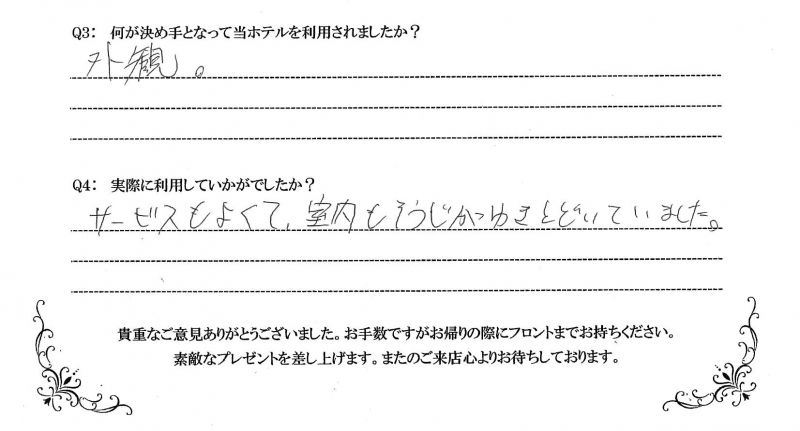 Q3: 何が決め手となって当ホテルを利用されましたか?
外観。
Q4: 実際に利用していかがでしたか?
サービスもよくて、室内もそうじがゆきとどいていました。
貴重なご意見ありがとうございました。お手数ですがお帰りの際にフロントまでお持ちください。
素敵なプレゼントを差し上げます。またのご来店心よりお待ちしております。